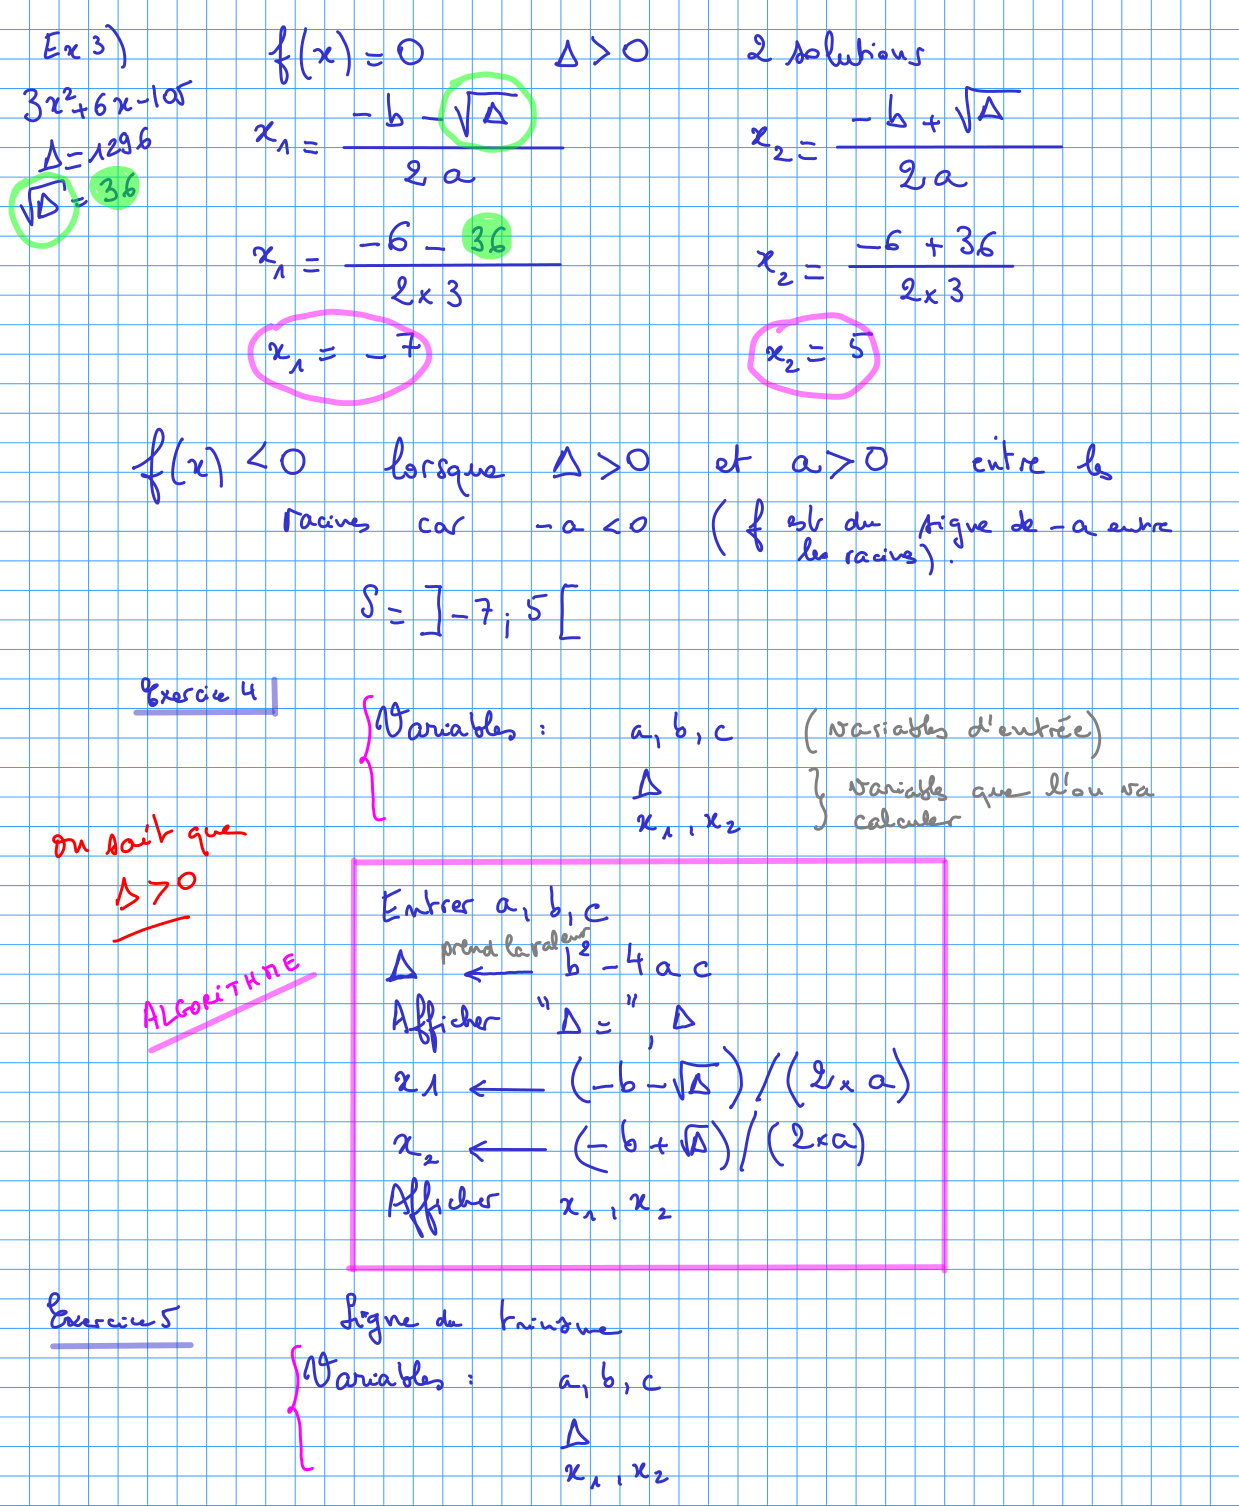 Ex 3) f(x) = 0 Δ > 0 2 solutions
3x² + 6x - 105
Δ = 1296
√Δ = 36
x₁ = (-b - √Δ) / 2a x₂ = (-b + √Δ) / 2a
x₁ = (-6 - 36) / (2 × 3) x₂ = (-6 + 36) / (2 × 3)
x₁ = -7 x₂ = 5
f(x) < 0 lorsque Δ > 0 et a > 0 entre les
racines car -a < 0 (f est du signe de -a entre
les racines).
S = ]-7 ; 5[
Exercice 4
Variables : a, b, c (variables d'entrée)
Δ } variables que l'on va
x₁, x₂ calculer
on sait que
Δ > 0
ALGORITHME
Entrer a, b, c
prend la valeur
Δ ← b² - 4ac
Afficher "Δ = ", Δ
x1 ← (-b - √Δ) / (2 × a)
x₂ ← (-b + √Δ) / (2 × a)
Afficher x₁, x₂
Exercice 5 Signe du trinôme
Variables : a, b, c
Δ
x₁, x₂